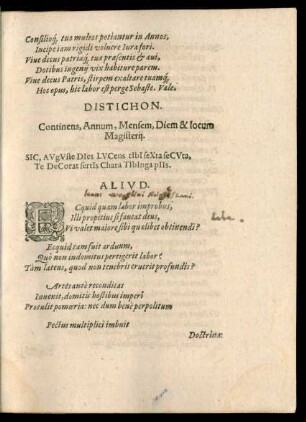 Consilioq́, tuo multos potiantur in Annos,
Incipe iam rigidi voluere Iura fori.
Viue decus patriaq́, tuæ præsentis & aui,
Dotibus ingenÿ vix habiture parem.
Viue decus Patris, stirpem exaltare tuamq́,
Hoc opus, hic labor est perge Sebaste. Vale.
DISTICHON.
Continens, Annum, Mensem, Diem & locum
Magisterij.
SIC, AVgVste DIes LVCens tIbI seXta seCVta,
Te DeCorat sertIs Chara TVbInga pIIs.
ALIVD.
ECquid quam labor improbus,
Illi propitius si fantat deus,
Vi valet maiore sibi qu libet obtinendi?
Ecquid tam fuit arduum,
Quò non indomitus pertigerit labor?
Tam latens, quod non tenebris eruerit profundis?
Artes antè reconditas
Inuenit, domitis hostibus imperî
Protulit pomœria: nec dum benè perpolitum
Pectus multiplici imbuit
Doctrinæ